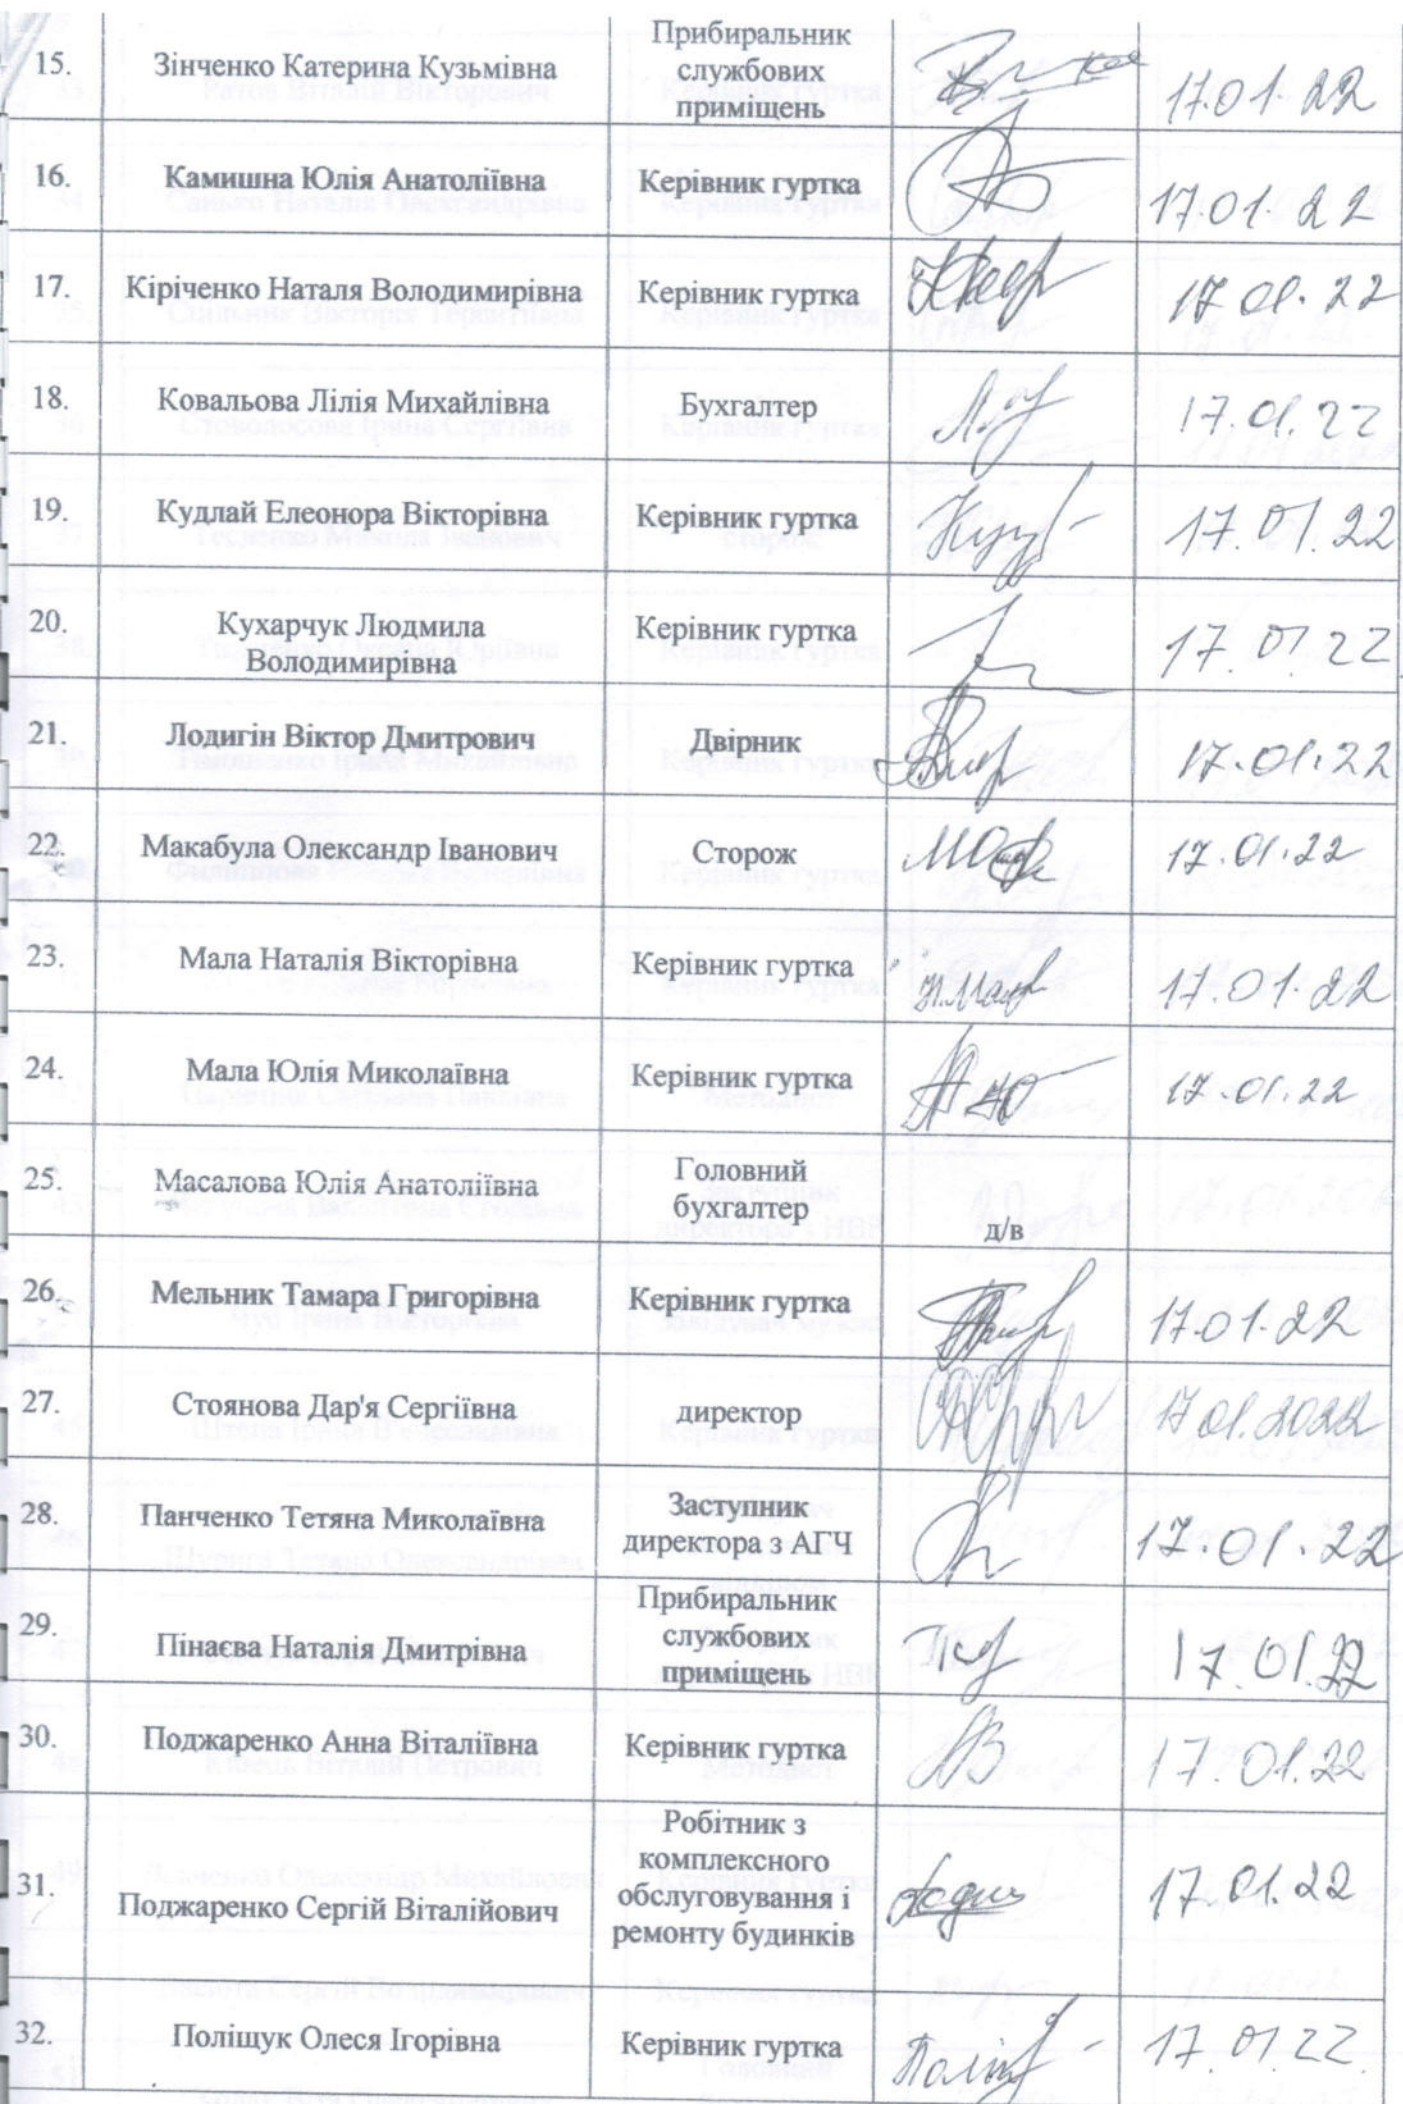 15. Зінченко Катерина Кузьмівна Прибиральник
службових
приміщень 17.01.22
16. Камишна Юлія Анатоліївна Керівник гуртка 17.01.22
17. Кіріченко Наталя Володимирівна Керівник гуртка 17.01.22
18. Ковальова Лілія Михайлівна Бухгалтер 17.01.22
19. Кудлай Елеонора Вікторівна Керівник гуртка 17.01.22
20. Кухарчук Людмила
Володимирівна Керівник гуртка 17.01.22
21. Лодигін Віктор Дмитрович Двірник 17.01.22
22. Макабула Олександр Іванович Сторож 17.01.22
23. Мала Наталія Вікторівна Керівник гуртка 17.01.22
24. Мала Юлія Миколаївна Керівник гуртка 17.01.22
25. Масалова Юлія Анатоліївна Головний
бухгалтер д/в
26. Мельник Тамара Григорівна Керівник гуртка 17.01.22
27. Стоянова Дар'я Сергіївна директор 17.01.2022
28. Панченко Тетяна Миколаївна Заступник
директора з АГЧ 17.01.22
29. Пінаєва Наталія Дмитрівна Прибиральник
службових
приміщень 17.01.22
30. Поджаренко Анна Віталіївна Керівник гуртка 17.01.22
31. Поджаренко Сергій Віталійович Робітник з
комплексного
обслуговування і
ремонту будинків 17.01.22
32. Поліщук Олеся Ігорівна Керівник гуртка 17.01.22